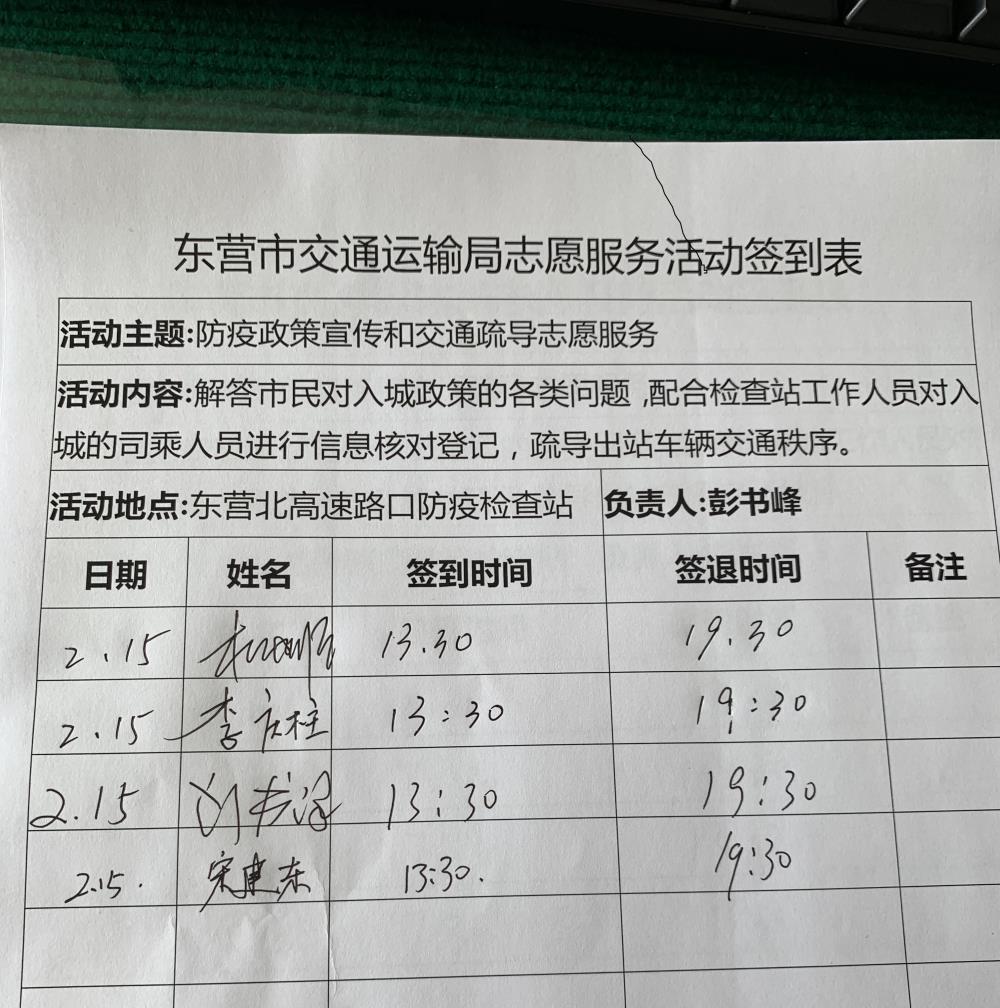 东营市交通运输局志愿服务活动签到表
活动主题:防疫政策宣传和交通疏导志愿服务
活动内容:解答市民对入城政策的各类问题,配合检查站工作人员对入
城的司乘人员进行信息核对登记，疏导出站车辆交通秩序。
活动地点:东营北高速路口防疫检查站 负责人:彭书峰
日期 姓名 签到时间 签退时间 备注
2.15 13.30 19.30
2.15 李庆柱 13:30 19:30
2.15 刘 13:30 19:30
2.15. 宋建东 13:30. 19:30